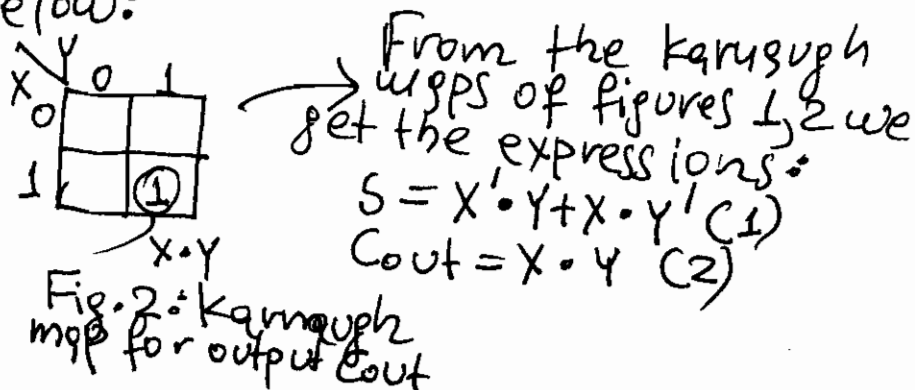 elow:
Y
X 0 1
0
1 1
X•Y
Fig. 2: Karnaugh
map for output Cout
From the Karnaugh
maps of figures 1,2 we
get the expressions:
S = X'•Y+X•Y' (1)
Cout = X•Y (2)